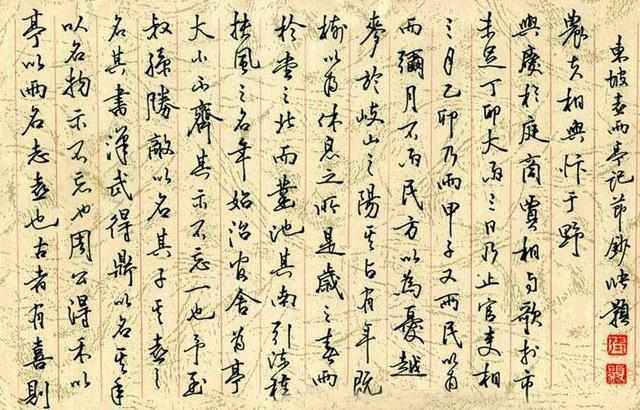 亭以雨名志喜也古者有喜則
以名物示不忘也周公得禾以
名其書漢武得鼎以名其年
叔孫勝敵以名其子其喜之
大小不齊其示不忘一也予至
扶風之明年始治官舍為亭
於堂之北而鑿池其南引流種
樹以為休息之所是歲之春雨
麥於岐山之陽其占有年既
而彌月不雨民方以為憂越
三月乙卯乃雨甲子又雨民以為
未足丁卯大雨三日乃止官吏相
與慶於庭商賈相與歌於市
農夫相與忭于野
東坡喜雨亭記節鈔 題